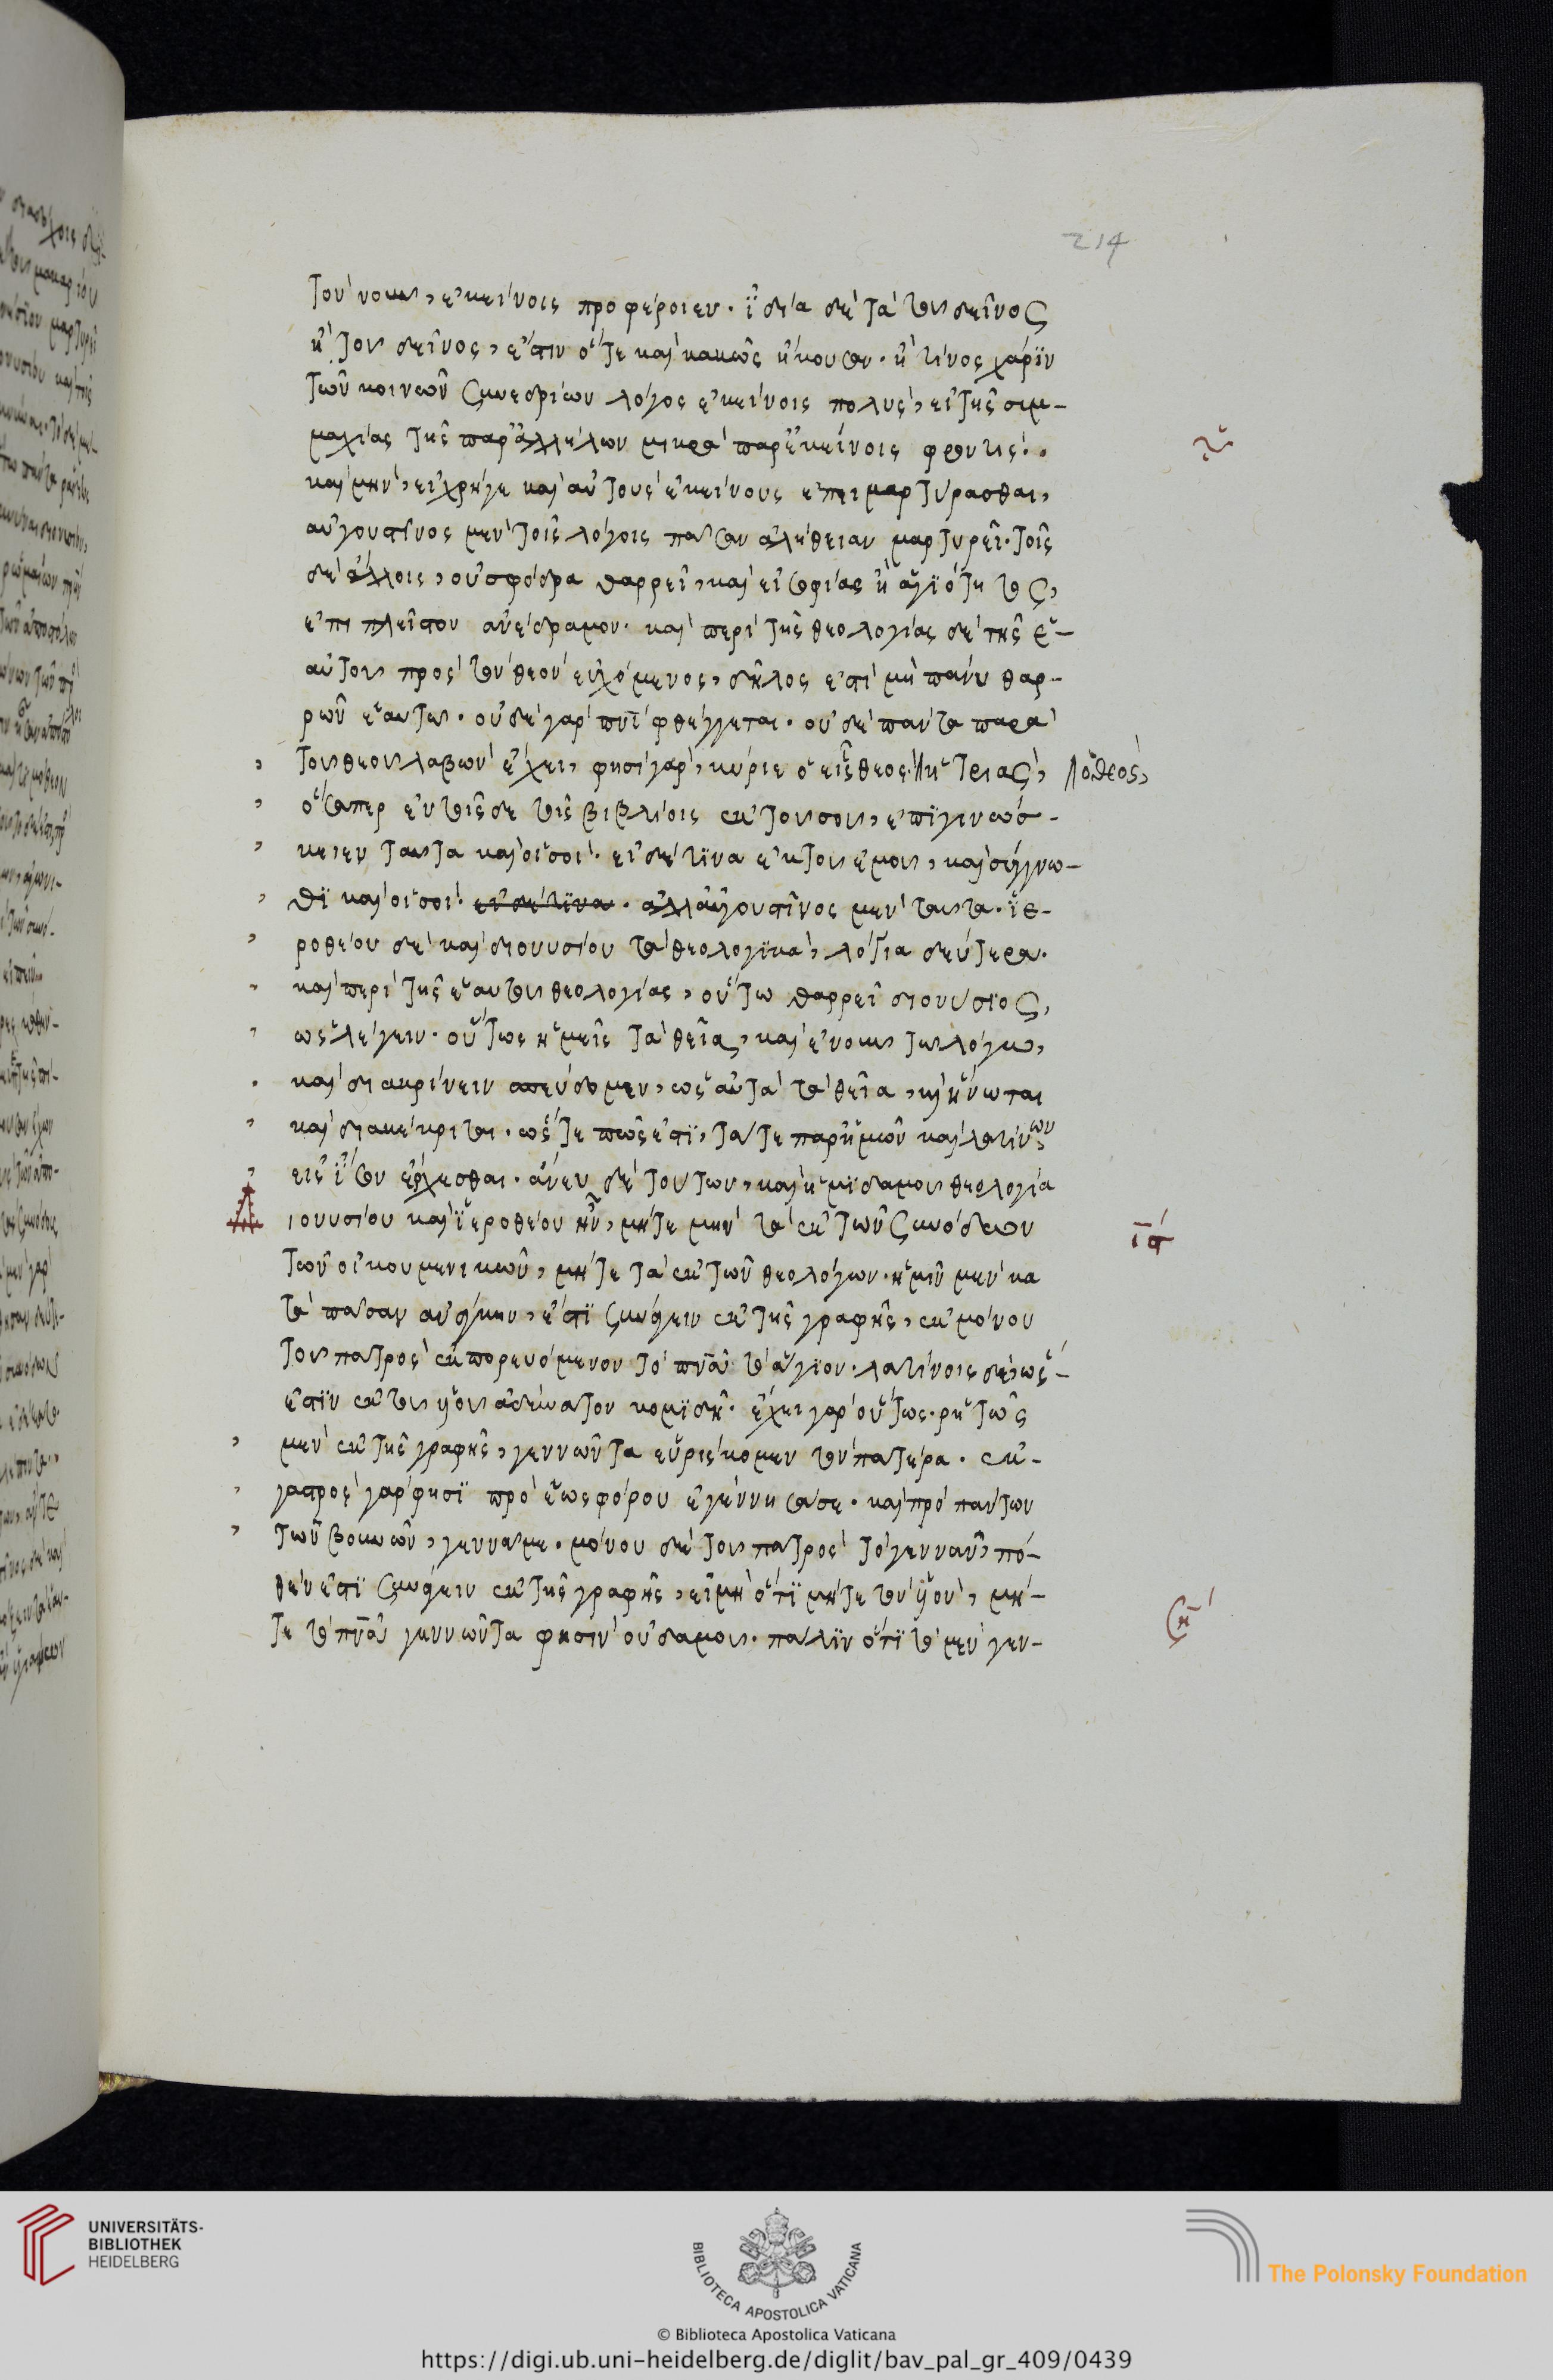 214
τοὐνομα, ἐκείνοις προφέροιεν. ἰδία δὲ τὰ τοῦ δεῖνος
ἢ τοῦ δεῖνος, ἔστιν ὅτε καὶ κακῶς ἤκουσαν. ἢ τίνος χάριν
τῶν κοινῶν συνεδρίων λόγος ἐκείνοις πολὺς, εἰ τῆς συμ-
μαχίας τῆς παρ' ἀλλήλων μικρὰ παρ' ἐκείνοις φροντίς.
καὶ μὴν, εἰ χρή γε καὶ αὐτοὺς ἐκείνους ἐπιμαρτύρασθαι,
αὐγουστῖνος μὲν τοῖς λόγοις πᾶσαν ἀλήθειαν μαρτυρεῖ. τοῖς
δὲ ἄλλοις, οὐ σφόδρα θαρρεῖ, καὶ εἰ σοφίας ἢ ἁγιότητος,
ἐπὶ πλεῖστον ἀνέδραμον. καὶ περὶ τῆς θεολογίας δὲ τῆς ἑ-
αυτοῦ πρὸς τὸν θεὸν εὐχόμενος, δῆλος ἐστὶ μὴ πάνυ θαρ-
ρῶν ἑαυτῷ. οὐδὲ γὰρ πνι φθέγγεται. οὐδὲ πάντα παρὰ
τοῦ θεοῦ λαβὼν ἔχει, φησὶ γὰρ, κύριε ὁ εἷς θεὸς. ἡ τριὰς, ὁ θεὸς,
ὅσαπερ ἐν ταῖσδε ταῖς βίβλοις ἐκ τοῦ σοῦ, ἐπιγινώσ-
κοιεν ταῦτα καὶ οἱ σοί. εἰ δέ τινα ἐκ τοῦ ἐμοῦ, καὶ σύγγνω-
θι καὶ οἱ σοί. εἰ δέ τινα. ἀλλ' αὐγουστῖνος μὲν ταῦτα. ἱε-
ροθέου δὲ καὶ διονυσίου τὰ θεολογικὰ, λόγια δεύτερα.
καὶ περὶ τῆς ἑαυτοῦ θεολογίας, οὕτω θαρρεῖ διονύσιος,
ὡς λέγειν. οὕτως ἡμεῖς τὰ θεῖα, καὶ ἑνοῦν τῷ λόγῳ,
καὶ διακρίνειν σπεύδομεν, ὡς αὐτὰ τὰ θεῖα, καὶ ἥνωται
καὶ διακέκριται. ὥστε πῶς ἐστι, τά τε παρ' ἡμῶν καὶ λατίνων
εἰς ἴσον ἔρχεσθαι. ἄνευ δὲ τούτων, καὶ εἰ μηδαμοῦ θεολογία
ιονυσίου καὶ ἱεροθέου ἦν, μήτε μὴν τὰ ἐκ τῶν συνόδων
τῶν οἰκουμενικῶν, μήτε τὰ ἐκ τῶν θεολόγων. ἡμῖν μὲν κα
τὰ πᾶσαν ἀνάγκην, ἔστι συνάγειν ἐκ τῆς γραφῆς, ἐκ μόνου
τοῦ πατρὸς ἐκπορευόμενον τὸ πνα τὸ ἅγιον. λατίνοις δὲ, ὡς
ἔστιν ἐκ τοῦ υἱοῦ ἀδύνατον κομιδῇ. ἔχει γὰρ οὕτως. ῥητῶς
μὲν ἐκ τῆς γραφῆς, γεννῶντα εὑρίσκομεν τὸν πατέρα. ἐκ
γαστρὸς γάρ φησι πρὸ ἑωσφόρου ἐγέννησά σε. καὶ πρὸ πάντων
τῶν βουνῶν, γεννᾷ με. μόνου δὲ τοῦ πατρὸς τὸ γεννᾶν, πό-
θεν ἐστὶ συνάγειν ἐκ τῆς γραφῆς, εἰ μὴ ὅτι μήτε τὸν υἱὸν, μή-
τε τὸ πνα γεννῶντα φησὶν οὐδαμοῦ. πάλιν ὅτι τὸ μὲν γεν-
ια
UNIVERSITÄTS-
BIBLIOTHEK
HEIDELBERG
BIBLIOTECA APOSTOLICA VATICANA
© Biblioteca Apostolica Vaticana
The Polonsky Foundation
https://digi.ub.uni-heidelberg.de/diglit/bav_pal_gr_409/0439